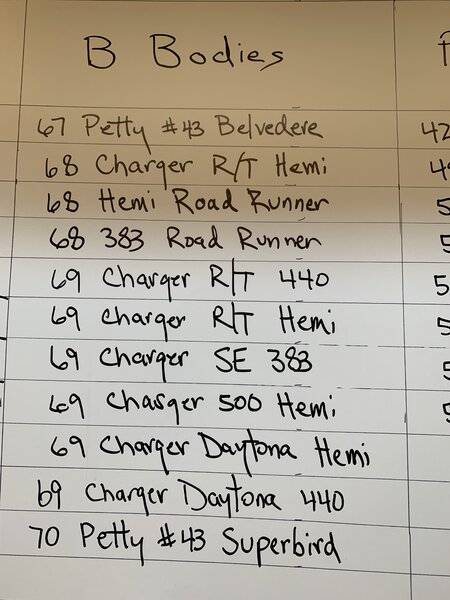 B Bodies
67 Petty #43 Belvedere 42
68 Charger R/T Hemi
68 Hemi Road Runner
68 383 Road Runner
69 Charger R/T 440
69 Charger R/T Hemi
69 Charger SE 383
69 Charger 500 Hemi
69 Charger Daytona Hemi
69 Charger Daytona 440
70 Petty #43 Superbird